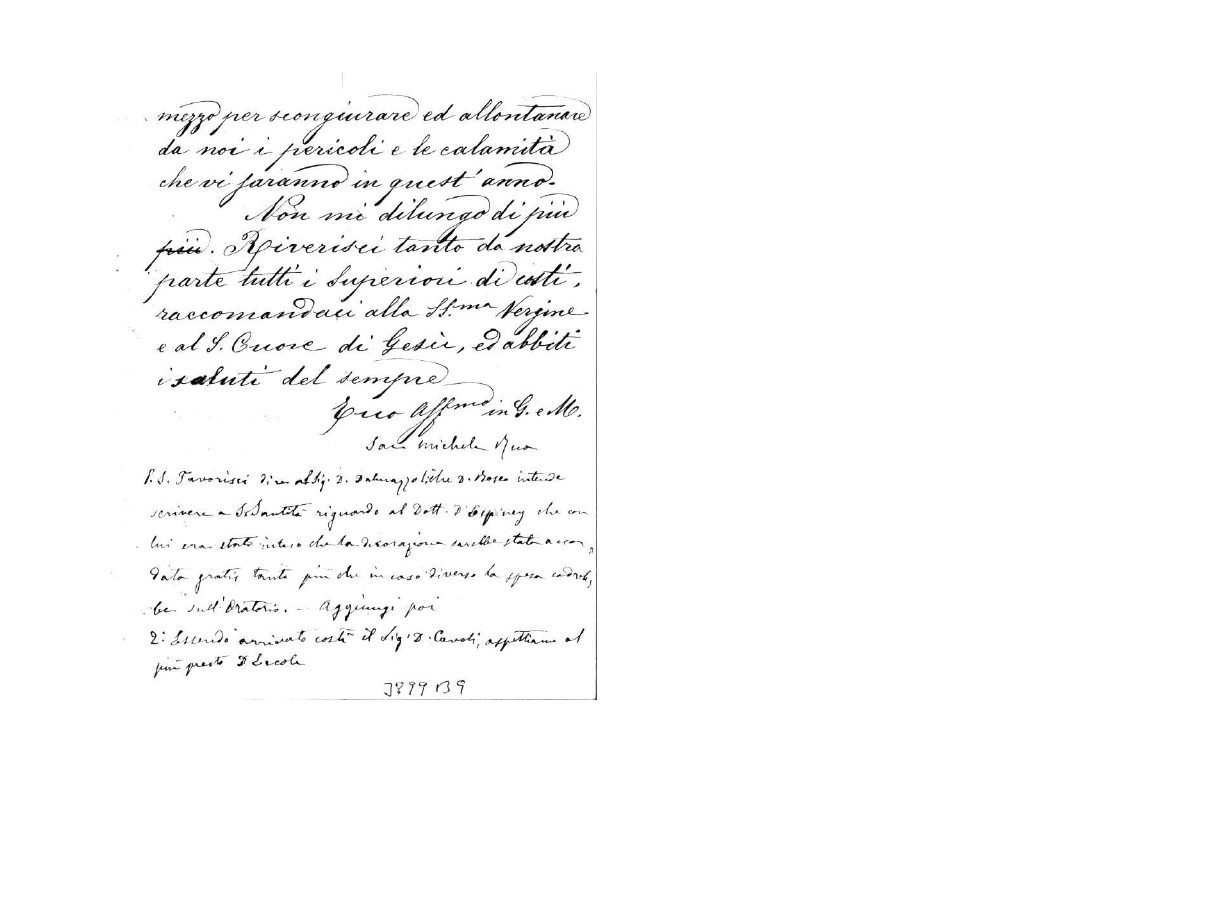 mezzo per scongiurare ed allontanare
da noi i pericoli e le calamità
che vi saranno in quest' anno.
Non mi dilungo di più
più. Riverisci tanto da nostra
parte tutti i Superiori di costì,
raccomandaci alla SS.ma Vergine
e al S. Cuore di Gesù, ed abbiti
i saluti del sempre
Tuo Aff.mo in G. e M.
Sac. Michele Rua
P.S. Favorisci dire al Sig. D. Dalmazzo che D. Bosco intende
scrivere a S. Santità riguardo al Dott. D'Espiney che con
lui era stato inteso che la decorazione sarebbe stata accor,
data gratis, tanto più che in caso diverso la spesa cadreb,
be sull'Oratorio. - Aggiungi poi
2° Essendo arrivato costì il Sig. D. Cavoli, aspettiamo al
più presto D. Ercole
3899 B 9